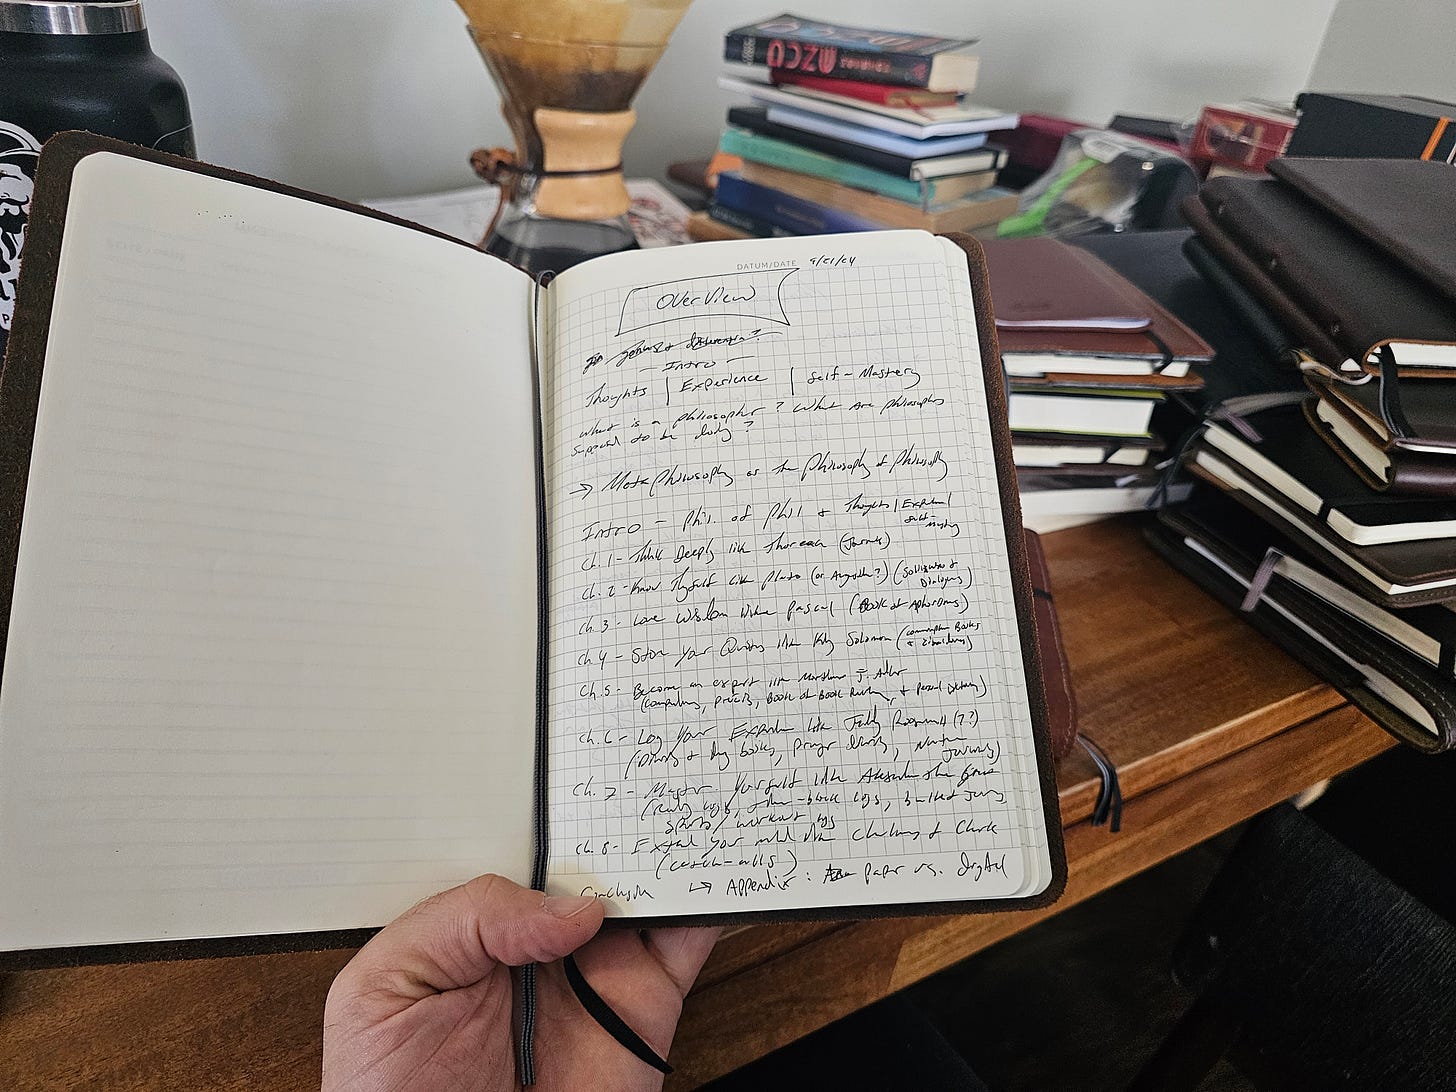 DATUM/DATE
OverView
Genus & differentia?
— Intro —
Thoughts | Experience | Self-Mastery
What is a philosopher? What are philosophers
supposed to be doing?
→ Metaphilosophy as the philosophy of philosophy
Intro - Phil. of Phil & Thoughts | Experience |
Self-
Mastery
Ch. 1 - Think Deeply like Thoreau (Journals)
Ch. 2 - Know Thyself like Plato (or Augustine?) (Soliloquies &
Dialogues)
Ch. 3 - Love Wisdom like Pascal (Book of Aphorisms)
Ch. 4 - Store your Quotes like King Solomon (Commonplace Books
& Zibaldones)
Ch. 5 - Become an expert like Mortimer J. Adler
(Compendium, précis, Book of Book Reviews, & Personal Dictionary)
Ch. 6 - Log Your Experience like Teddy Roosevelt (??)
(Diaries & Day books, prayer diaries, Nature
Journals)
Ch. 7 - Master Yourself like Alexander the Great
(Reading logs, time-block logs, bullet journals,
sports/workout logs
Ch. 8 - Extend your mind like Chalmers & Clark
(catch-alls)
Conclusion → Appendix: paper vs. Digital